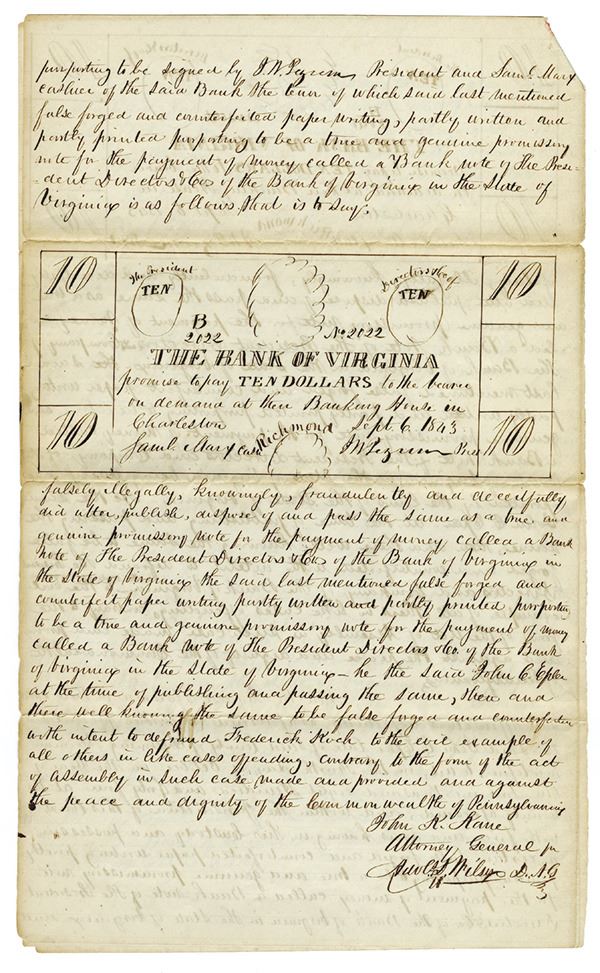 purporting to be signed by J. W. Pegram President and Saml. Marx
cashier of the said Bank the tenor of which said last mentioned
false forged and counterfeited paper writing, partly written and
partly printed purporting to be a true and genuine promissory
note for the payment of money called a Bank note of The Presi-
-dent Directors & Co of the Bank of Virginia in the State of
Virginia is as follows that is to say,
10 The President Directors & Co of 10
TEN TEN
B
2022 No 2022
THE BANK OF VIRGINIA
promise to pay TEN DOLLARS to the bearer
on demand at their Banking House in
Charleston Richmond Sept. 6. 1843.
10 Saml. Marx Cash J W Pegram Pres 10
falsely illegally, knowingly, fraudulently and deceitfully
did utter, publish, dispose of and pass the same as a true and
genuine promissory note for the payment of money called a Bank
note of The President Directors & Co of the Bank of Virginia in
the State of Virginia the said last mentioned false forged and
counterfeit paper writing partly written and partly printed purporting
to be a true and genuine promissory note for the payment of money
called a Bank note of The President Directors & Co. of the Bank
of Virginia in the State of Virginia – he the said John C. Epler
at the time of publishing and passing the same, then and
there well knowing the same to be false forged and counterfeited
with intent to defraud Frederick Koch to the evil example of
all others in like cases offending, contrary to the form of the act
of assembly in such case made and provided and against
the peace and dignity of the Commonwealth of Pennsylvania
John K. Kane
Attorney General pr
Wilson D. A. G